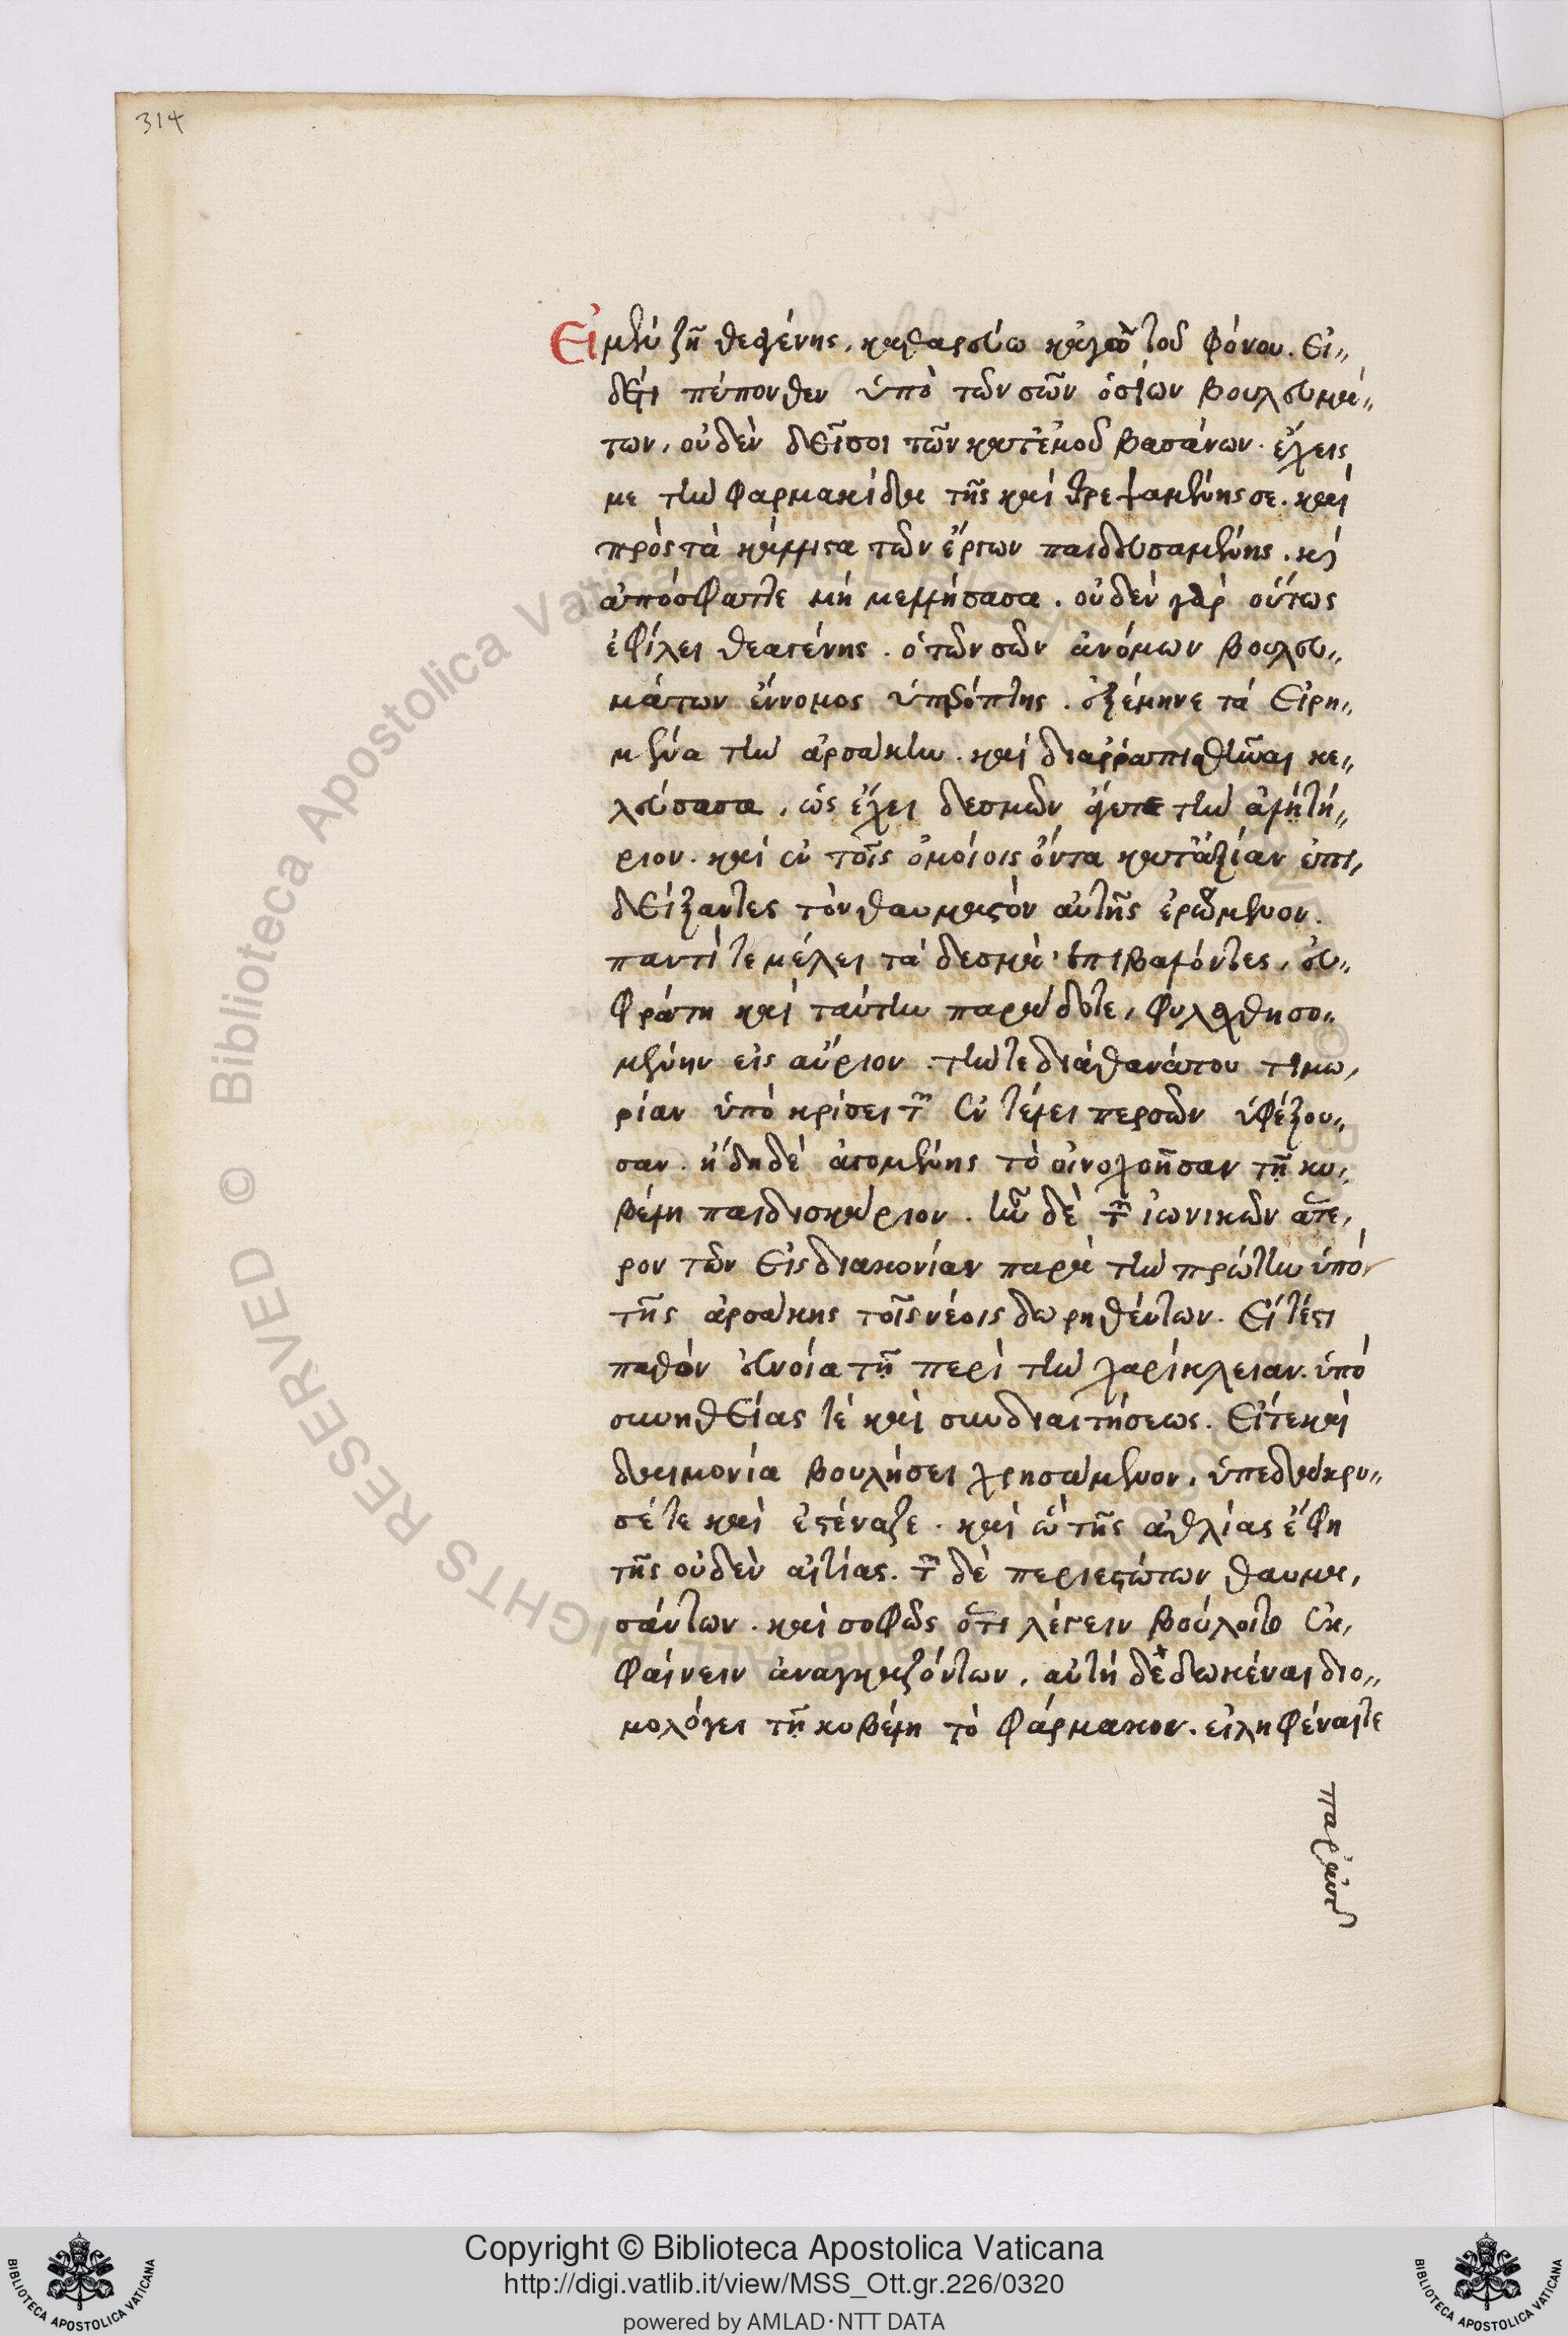 314
Εἰ μὲν ζῇ θεαγένης, καθαρεύω κἀγὼ τοῦ φόνου. εἰ
δέ τι πέπονθεν ὑπὸ τῶν σῶν ὁσίων βουλευμά
των, οὐδὲν δεῖ σοι τῶν κατ' ἐμοῦ βασάνων. ἔχεις
με τὴν φαρμακίδα τῆς καὶ θρεψαμένης σε. καὶ
πρὸς τὰ κάλλιστα τῶν ἔργων παιδευσαμένης. καὶ
ἀπόσφαττε μὴ μελλήσασα. οὐδὲν γὰρ οὕτως
ἐφίλει θεαγένης. ὁ τῶν σῶν ἀνόμων βουλευ
μάτων ἔννομος ὑπερόπτης. ἐξέμηνε τὰ εἰρη
μένα τὴν ἀρσάκην. καὶ διαρραπισθῆναι κε
λεύσασα, ὡς ἔχει δεσμῶν ἄγετε τὴν ἀλητή
ριον. καὶ ἐν τοῖς ὁμοίοις ὄντα κατ' ἀξίαν ἐπι
δείξαντες τὸν θαυμαστὸν αὐτῆς ἐρώμενον.
παντί τε μέλει τὰ δεσμὰ ἐπιβαλόντες, εὐ
φράτῃ καὶ ταύτην παράδοτε, φυλαχθησο
μένην εἰς αὔριον. τήν τε διὰ θανάτου τιμω
ρίαν ὑπὸ κρίσει τῶν ἐν τέλει περσῶν ὑφέξου
σαν. ἤδη δὲ ἀγομένης τὸ οἰνοχοῆσαν τῇ κυ
βέλῃ παιδισκάριον. ἦν δὲ τῶν ἰωνικῶν ἅτε
ρον τῶν εἰς διακονίαν παρὰ τὴν πρώτην ὑπὸ
τῆς ἀρσάκης τοῖς νέοις δωρηθέντων. εἴτε τι
παθὸν εὐνοίᾳ τῇ περὶ τὴν χαρίκλειαν. ὑπὸ
συνηθείας τὲ καὶ συνδιαιτήσεως. εἴτε καὶ
δαιμονίᾳ βουλήσει χρησάμενον, ὑπεδάκρυ
σέ τε καὶ ἐστέναζε. καὶ ὢ τῆς ἀθλίας ἔφη
τῆς οὐδὲν αἰτίας. τῶν δὲ περιεστώτων θαυμα
σάντων. καὶ σαφῶς ὅτι λέγειν βούλοιτο ἐκ
φαίνειν ἀναγκαζόντων, αὐτὴ δεδωκέναι διο
μολόγει τῇ κυβέλῃ τὸ φάρμακον. εἰληφέναι τε
παρ' αὐτ
Copyright © Biblioteca Apostolica Vaticana
http://digi.vatlib.it/view/MSS_Ott.gr.226/0320
powered by AMLAD·NTT DATA